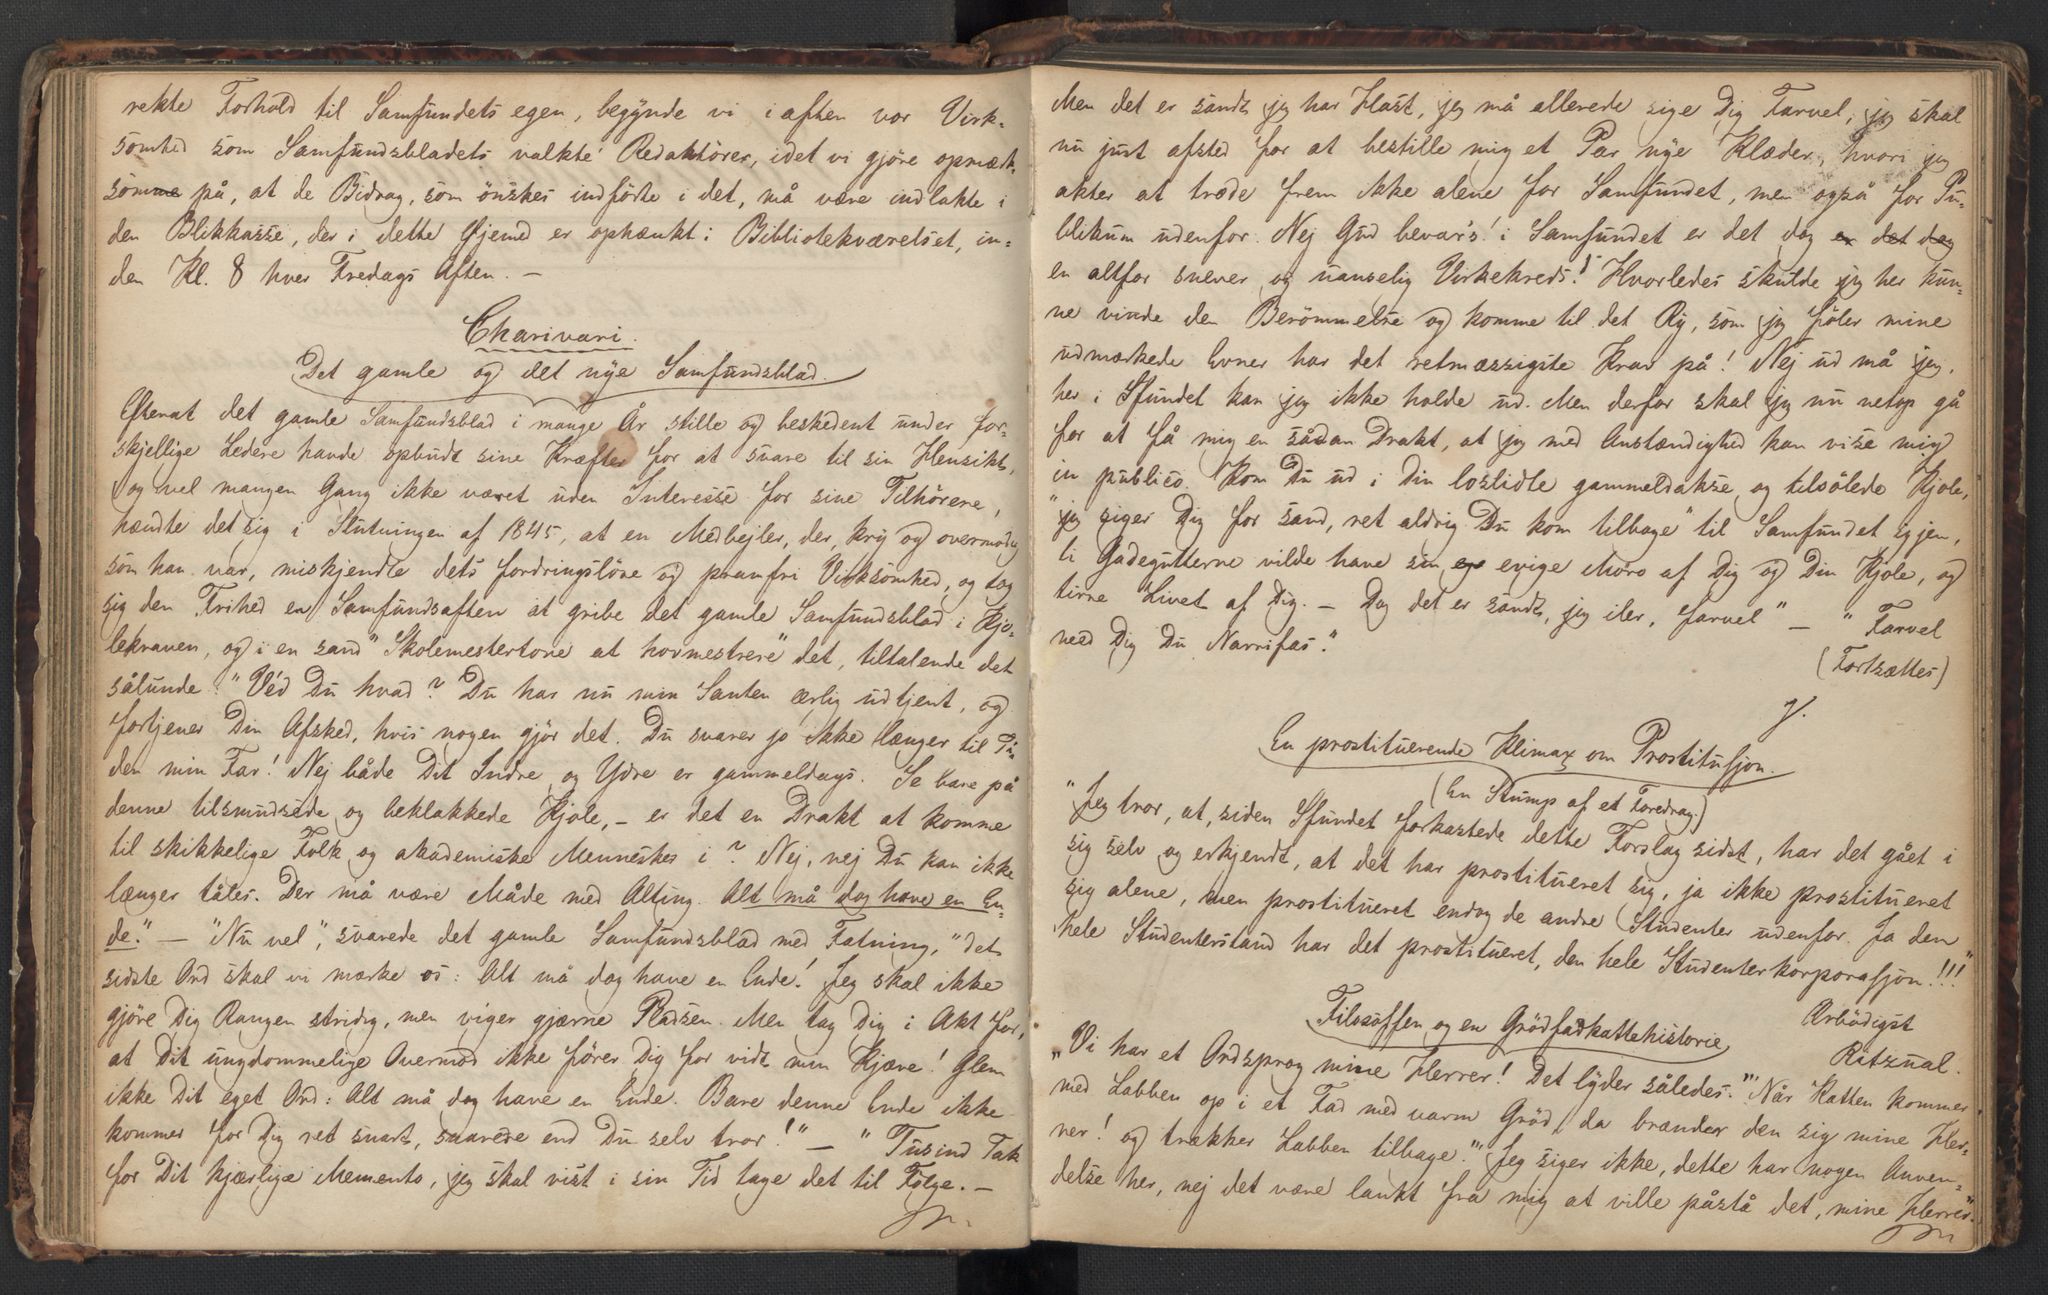 rekte Forhold til Samfundets egen, begynde vi i aften vor Virk-
somhed som Samfundsbladets valkte Redaktører, idet vi gjöre opmærk-
somme på, at de Bidrag, som önskes indförte i det, må være indlakte i
den Blikkasse, der i dette Öjemed er ophænkt i Bibliotekværelset, in-
den Kl. 8 hver Fredags Aften. —
Charivari.
Det gamle og det nye Samfundsblad.
Efterat det gamle Samfundsblad i mange År stille og beskedent under for-
skjellige Ledere havde opbudt sine Kræfter for at svare til sin Hensikt,
og vel mangen Gang ikke været uden Interesse for sine Tilhörere,
hændte det sig i Slutningen af 1845, at en Medbejler, der, kry og overmodig
som han var, miskjendte dets fordringslöse og pramfri Virksomhed, og tog
sig den Frihed en Samfundsaften at gribe det gamle Samfundsblad i Kjo-
lekraven, og i en sand "Skolemestertone at hovmestrere" det, tiltalende det
sålunde: "Ved Du hvad? Du har nu min Santen ærlig udtjent, og
fortjener Din Afsked, hvis nogen gjör det. Du svarer jo ikke længer til Ti-
den min Far! Nej både Dit Indre og Ydre er gammeldags. Se bare på
denne tilsmudsede og beklakkede Kjole, – er det en Drakt at komme
til skikkelige Folk og akademiske Mennesker i? Nej, nej Du kan ikke
længer tåles. Der må være Måde med Alting. Alt må dog have en En-
de." — "Nu vel", svarede det gamle Samfundsblad med Fatning, "det
sidste Ord skal vi mærke os: Alt må dog have en Ende! Jeg skal ikke
gjöre Dig Rangen stridig, men viger gjærne Pladsen. Men tag Dig i Akt for,
at Dit ungdommelige Overmod ikke förer Dig for vidt min Kjære! Glem
ikke Dit eget Ord: Alt må dog have en Ende. Bare denne Ende ikke
kommer for Dig ret snart, snarere end Du selv tror!" — "Tusind Tak
for Dit kjærlige Memento, jeg skal vist i sin Tid tage det til Fölge. —
Men det er sandt jeg har Hast, jeg må allerede sige Dig Farvel, jeg skal
nu just afsted for at bestille mig et Par nye Klæder, hvori jeg
akter at træde frem ikke alene for Samfundet, men også for Pu-
blikum udenfor. Nej Gud bevar's! i Samfundet er det dog er det dog
en altfor snever og uanselig Virkekreds! Hvorledes skulde jeg her kun-
ne vinde den Berömmelse og komme til det Ry, som jeg föler mine
udmærkede Evner har det retmæssigste Krav på! Nej ud må jeg,
her i Sfundet kan jeg ikke holde ud. Men derfor skal jeg nu netop gå
for at få mig en sådan Drakt, at jeg med Anstændighed kan vise mig
in publico. Kom Du ud i Din loslidte gammeldakse og tilsölede Kjole,
"jeg siger Dig for sand, ret aldrig Du kom tilbage" til Samfundet igjen,
ti Gadegutterne vilde have sin og evige Moro af Dig og Din Kjole, og
tirre Livet af Dig. — Dog det er sandt, jeg iler, farvel" — "Farvel
med Dig Du Narrifas."
(Fortsættes)
En prostituerende Klimax om Prostitusjon.
(En Stump af et Foredrag.)
"Jeg tror, at, siden Sfundet forkastede dette Forslag sidst, har det gået i
sig selv og erkjendt, at det har prostitueret sig, ja ikke prostitueret
sig alene, men prostitueret endog de andre Studenter udenfor. Ja den
hele Studenterstand har det prostitueret, den hele Studenterkorporasjon!!!"
Ærbödigst
Ritzual.
Filosoffen og en Grödfadkattehistorie
"Vi har et Ordsprog mine Herrer! Det lyder således: "Når Katten kommer
med Labben op i et Fad med varm Gröd, da brænder den sig mine Her-
rer! og trækker Labben tilbage." Jeg siger ikke, dette har nogen Anven-
delse her, nej det være lankt fra mig at ville påstå det, mine Herrer."